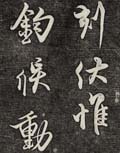 刻伏惟
鈞候動